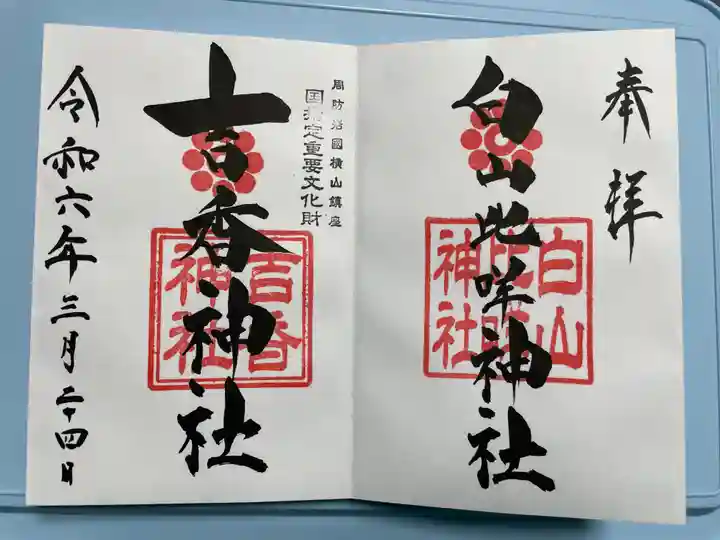 奉拝
白山比咩神社
白山
比咩
神社
周防治國横山鎮座
国指定重要文化財
吉香神社
吉香
神社
令和六年三月二十四日